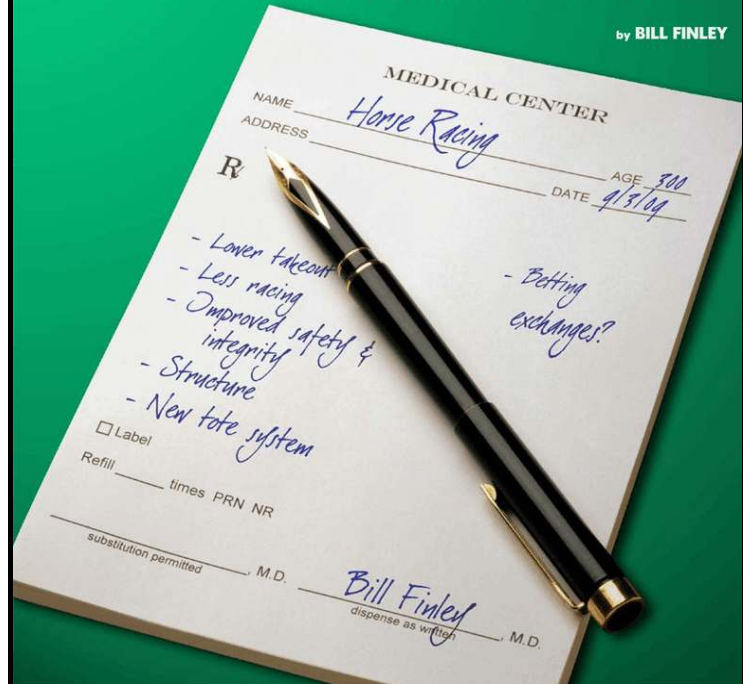 by BILL FINLEY
MEDICAL CENTER
NAME Horse Racing AGE 300
ADDRESS DATE 9/3/09
R
- Lower takeout
- Less racing
- Improved safety &
integrity
- Structure
- New tote system
- Betting
exchanges?
Label
Refill times PRN NR
substitution permitted , M.D.
Bill Finley , M.D.
dispense as written